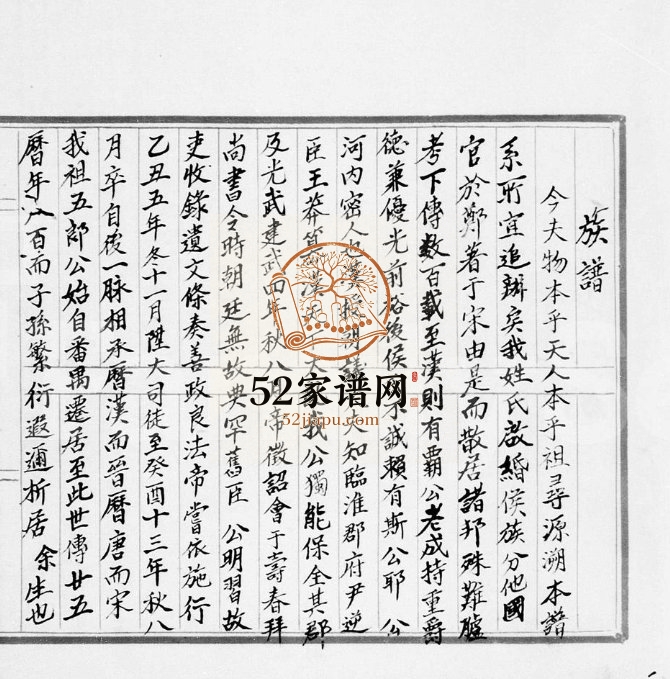 族譜
今夫物本乎天人本乎祖尋源溯本譜
系所宜追辦矣我姓氏啟緍侯族分他國
官於鄭著于宋由是而散居諸邦殊難臚
考下傳数百載至漢則有霸公老成持重爵
德兼優光前裕後侯不誠賴有斯公耶 公
河内密人也漢授朝議大夫知臨淮郡府尹逆
臣王莽篡漢天大亂我公獨能保全其郡
及光武建武四年秋八帝徵詔會于壽春拜
尚書令時朝廷無故典罕舊臣 公明習故
吏收錄遺文條奏善政良法帝嘗依施行
乙丑五年冬十一月陞大司徒至癸酉十三年秋八
月卒自後一脉相承曆漢而晉曆唐而宋
我祖五郎公始自番禺遷居至此世傳廿五
曆年八百而子孫繁衍遐邇析居 余生也
52家谱网
52jiapu.com